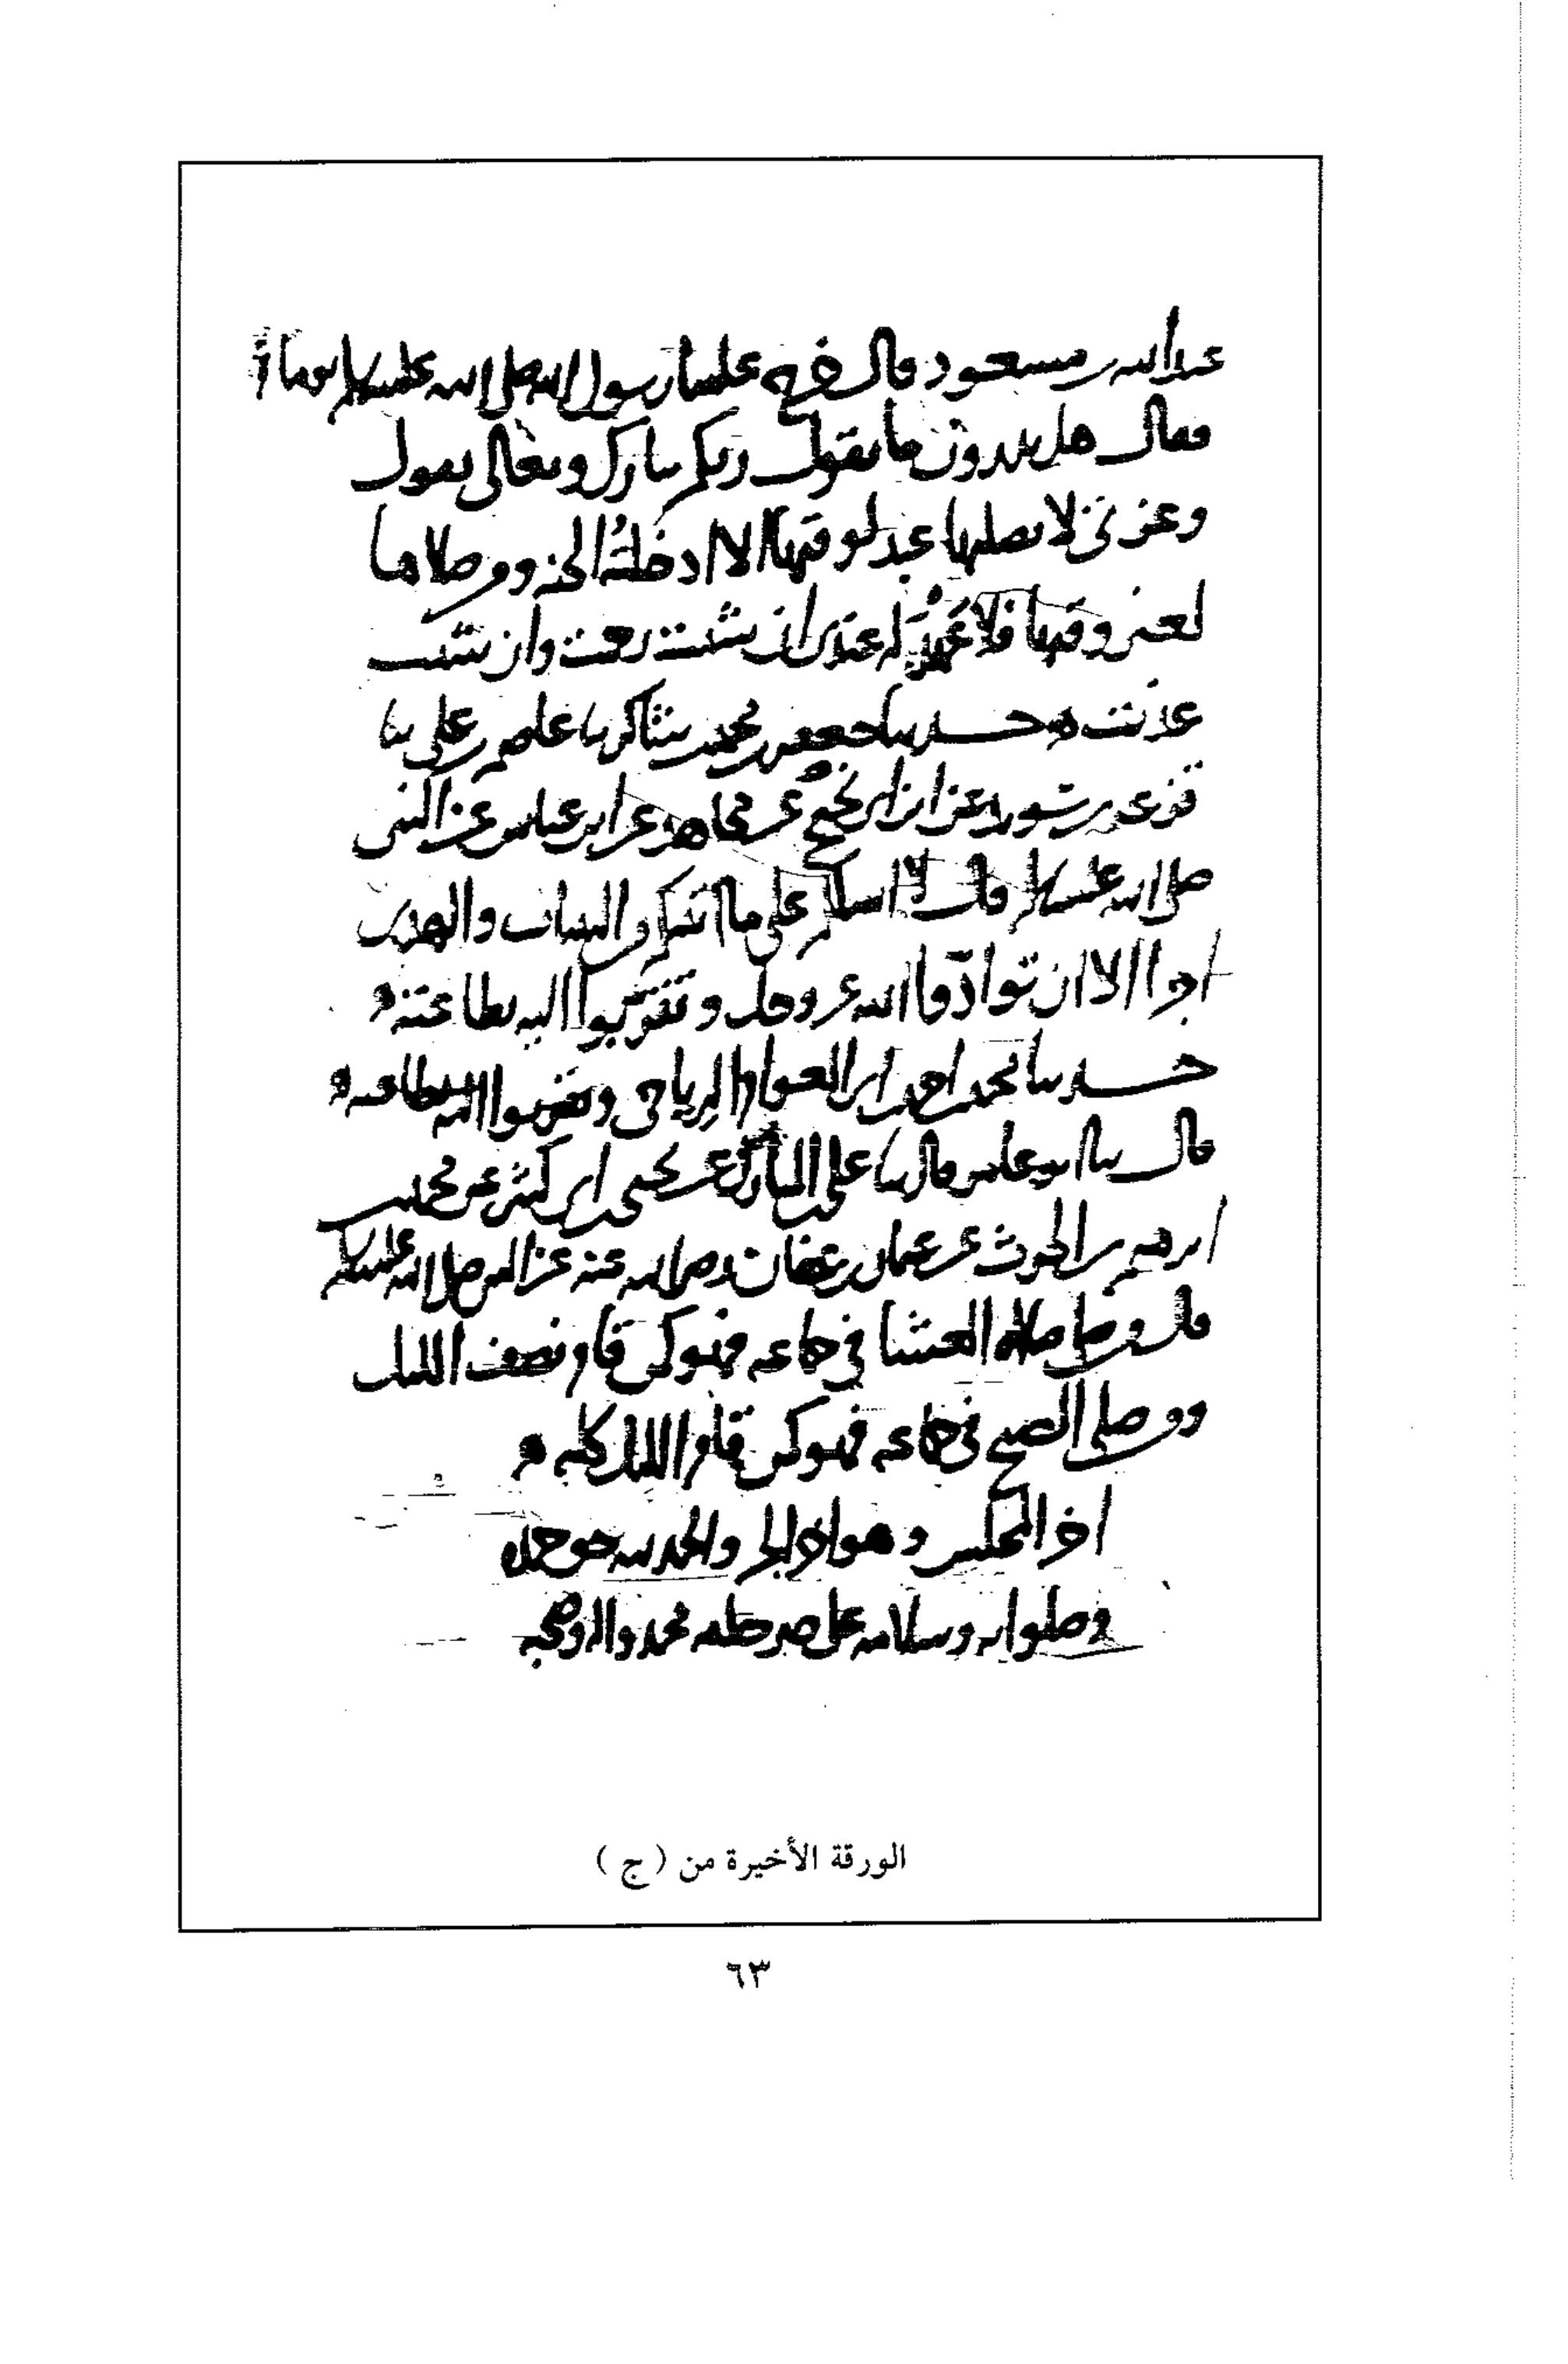 عبد الله بن مسعود قال خرج علينا رسول الله صلى الله عليه وسلم يوما
فقال هل تدرون ما يقول ربكم تبارك وتعالى يقول
وعزتي لا يصليها عبد لوقتها الا ادخلته الجنة ومن صلاها
لغير وقتها فلا عهد له عندي ان شئت رحمت وان شئت
عذبت ه حدثنا جعفر بن محمد بن شاكر نا عاصم بن علي نا
قزعة بن سويد عن ابن ابي نجيح عن مجاهد عن ابن عباس عن النبي
صلى الله عليه وسلم قال لا اسلكم على ما اتيتكم من البينات والهدى
اجرا الا ان توادوا الله عز وجل وتقربوا اليه بطاعته ه
حدثنا محمد بن احمد بن ابي العوام الرياحي
قال نا ابو عامر قال نا علي بن المبارك عن يحيى بن ابي كثير عن محمد بن
ابرهيم بن الحرث عن عثمان بن عفان رضي الله عنه عن النبي صلى الله عليه وسلم
قال من صلى صلاة العشا في جماعة فهو كمن قام نصف الليل
ومن صلى الصبح في جماعة فهو كمن قام الليل كله ه
اخر المجلس وهو اخر الجز والحمد لله حق حمده
وصلواته وسلامه على خير خلقه محمد واله وصحبه
الورقة الأخيرة من ( ج )
٦٣